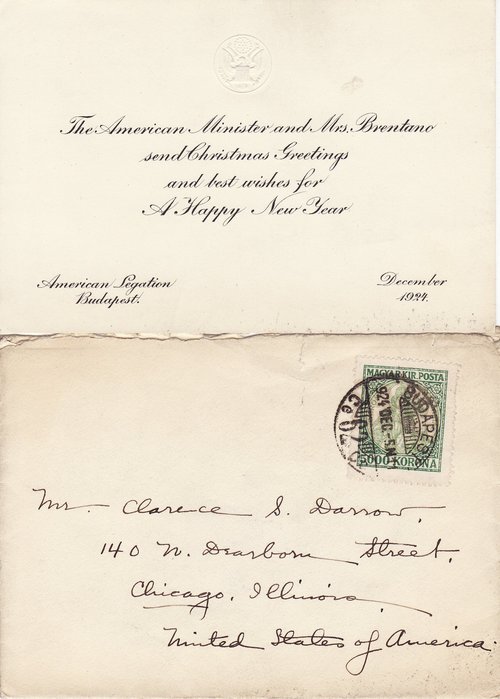 The American Minister and Mrs. Brentano
send Christmas Greetings
and best wishes for
A Happy New Year
American Legation
Budapest.
December
1924.
MAGYAR KIR. POSTA
BUDAPEST
924 DEC -5
5000 KORONA
Mr. Clarence S. Darrow,
140 N. Dearborn Street,
Chicago, Illinois,
United States of America.